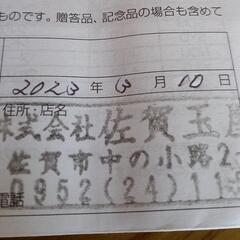 ものです。贈答品、記念品の場合も含めて
2023 年 6 月 10 日
住所・店名
株式会社 佐賀玉屋
佐賀市中の小路2
0952(24)11
電話